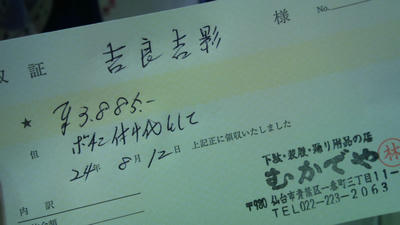 収証
No.
吉良吉影 様
★ ¥3,885-
但 ボタン付代として
24年 8月12日 上記正に領収いたしました
内訳
下駄・装履・踊り用品の店
むかでや 林
〒980 仙台市青葉区一番町三丁目11-
TEL022-223-2063